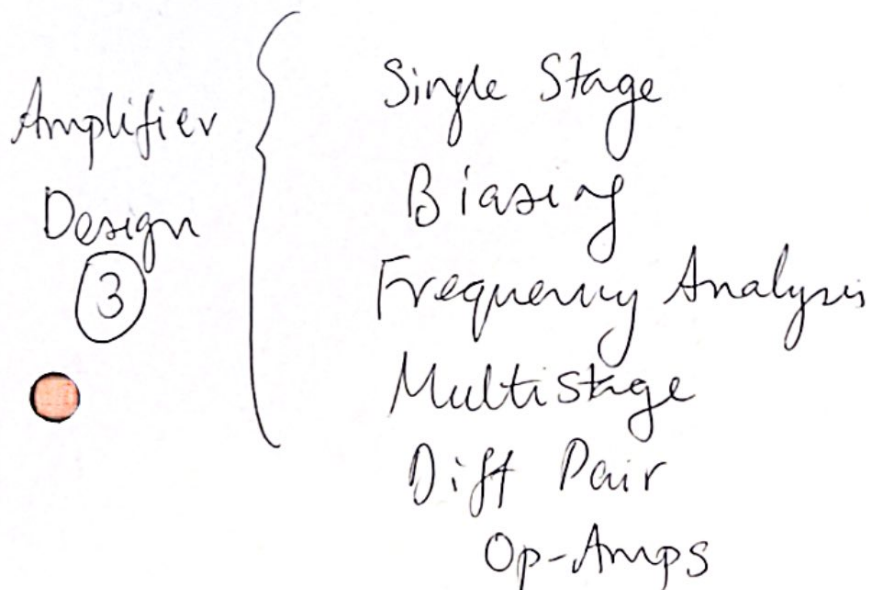 Amplifier
Design
3
Single Stage
Biasing
Frequency Analysis
Multistage
Diff Pair
Op-Amps